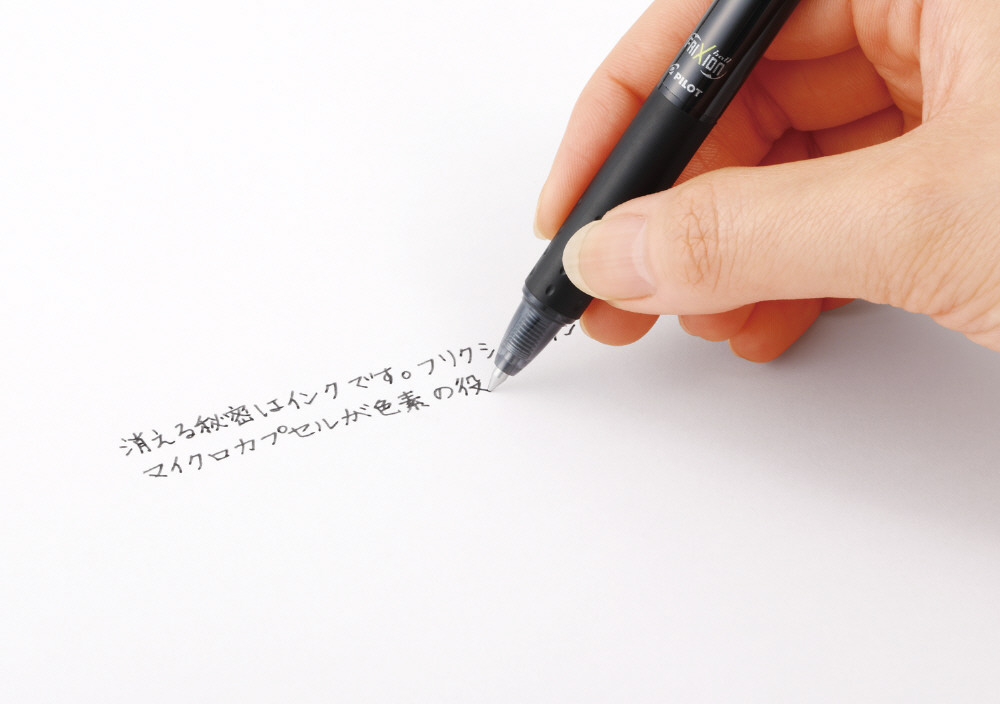 FRIXION ball
PILOT
消える秘密はインクです。フリクシ
マイクロカプセルが色素の役